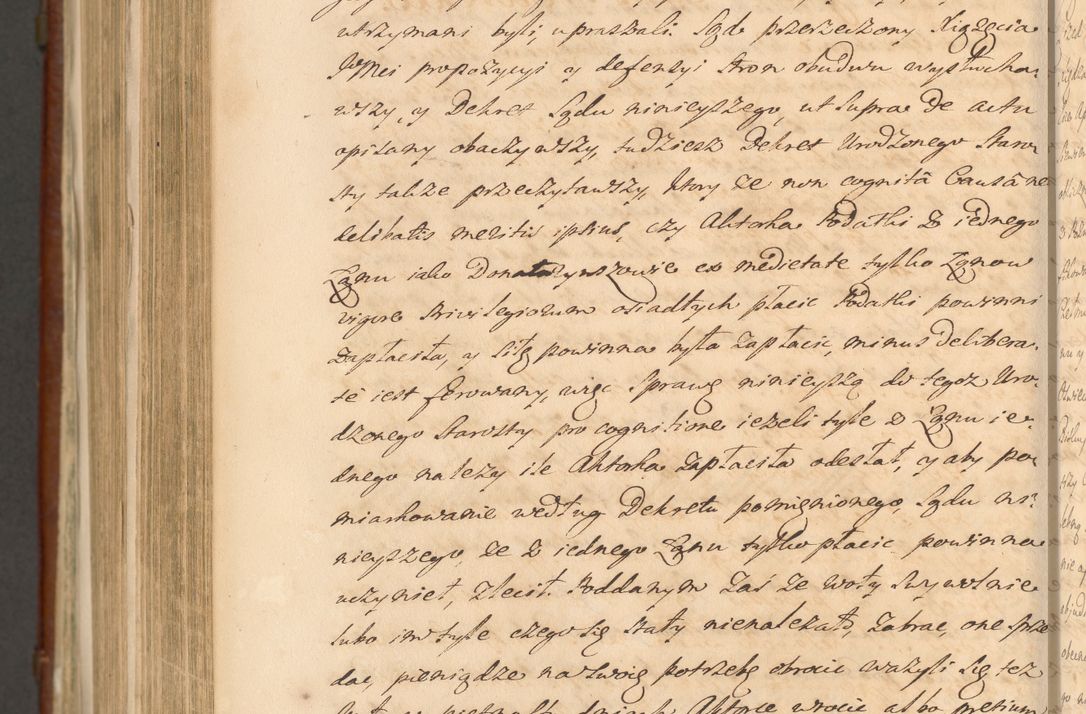 utrzymani byli, upraszali. Sąd przerzeczony Xiązęcia
JMci propozycyi y defensyi stron obudwu wysłucha-
wszy, y Dekret Sądu ninieyszego, ut supra de actu
opisany obaczywszy, tudziesz Dekret Urodzonego Staro-
sty także przeczytawszy, ktory że non cognitâ Causâ ne
delibatis meritis ipsius, czy Aktorka Podatki z iednego
Łanu iako Donataryuszowie ex medietate tylko Łanow
vigore Privilegiorum osiadłych płacic Podatki powinni
zapłaciła, y siłę powinna była zapłacic, minus delibera-
te iest ferowany, więc sprawę ninieyszą do tegoż Uro-
dzonego Starosty pro cognitione ieżeli tyle z Łanu ie-
dnego należy ile Aktorka zapłaciła odesłał, y aby po-
miarkowanie według Dekretu pomienionego, Sądu ni-
nieyszego, że z iednego Łanu tylko płacic powinna
uczynieł, zlecił. Poddanym zaś że woły swywolnie
lubo im tyle czego się stały nienależało, zabrac, one sprze
dac, pieniądze na swoię potrzebę obrocic ważyli się też